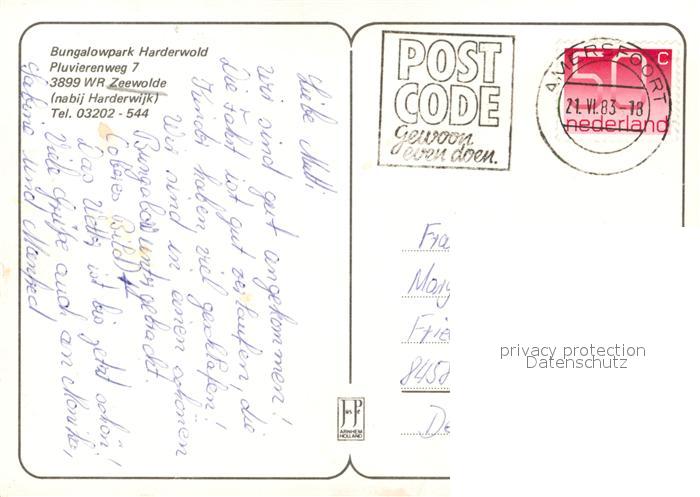 Bungalowpark Harderwold
Pluvierenweg 7
3899 WR Zeewolde
(nabij Harderwijk)
Tel. 03202 - 544
Liebe Mutti
wir sind gut angekommen!
Die Fahrt ist gut verlaufen, die
Kinder haben viel geschlafen!
Wir sind in einen schönen
Bungalow untergebracht.
Bild
Das Wetter ist bis jetzt schön!
Viele Grüße auch an Monika,
Sabine und Manfred
POST
CODE
Gewoon
even doen.
AMERSFOORT
21.VI.83-18
c
nederland
Fra
Marg
Frie
8458
De
JosPe
ARNHEM
HOLLAND
privacy protection
Datenschutz